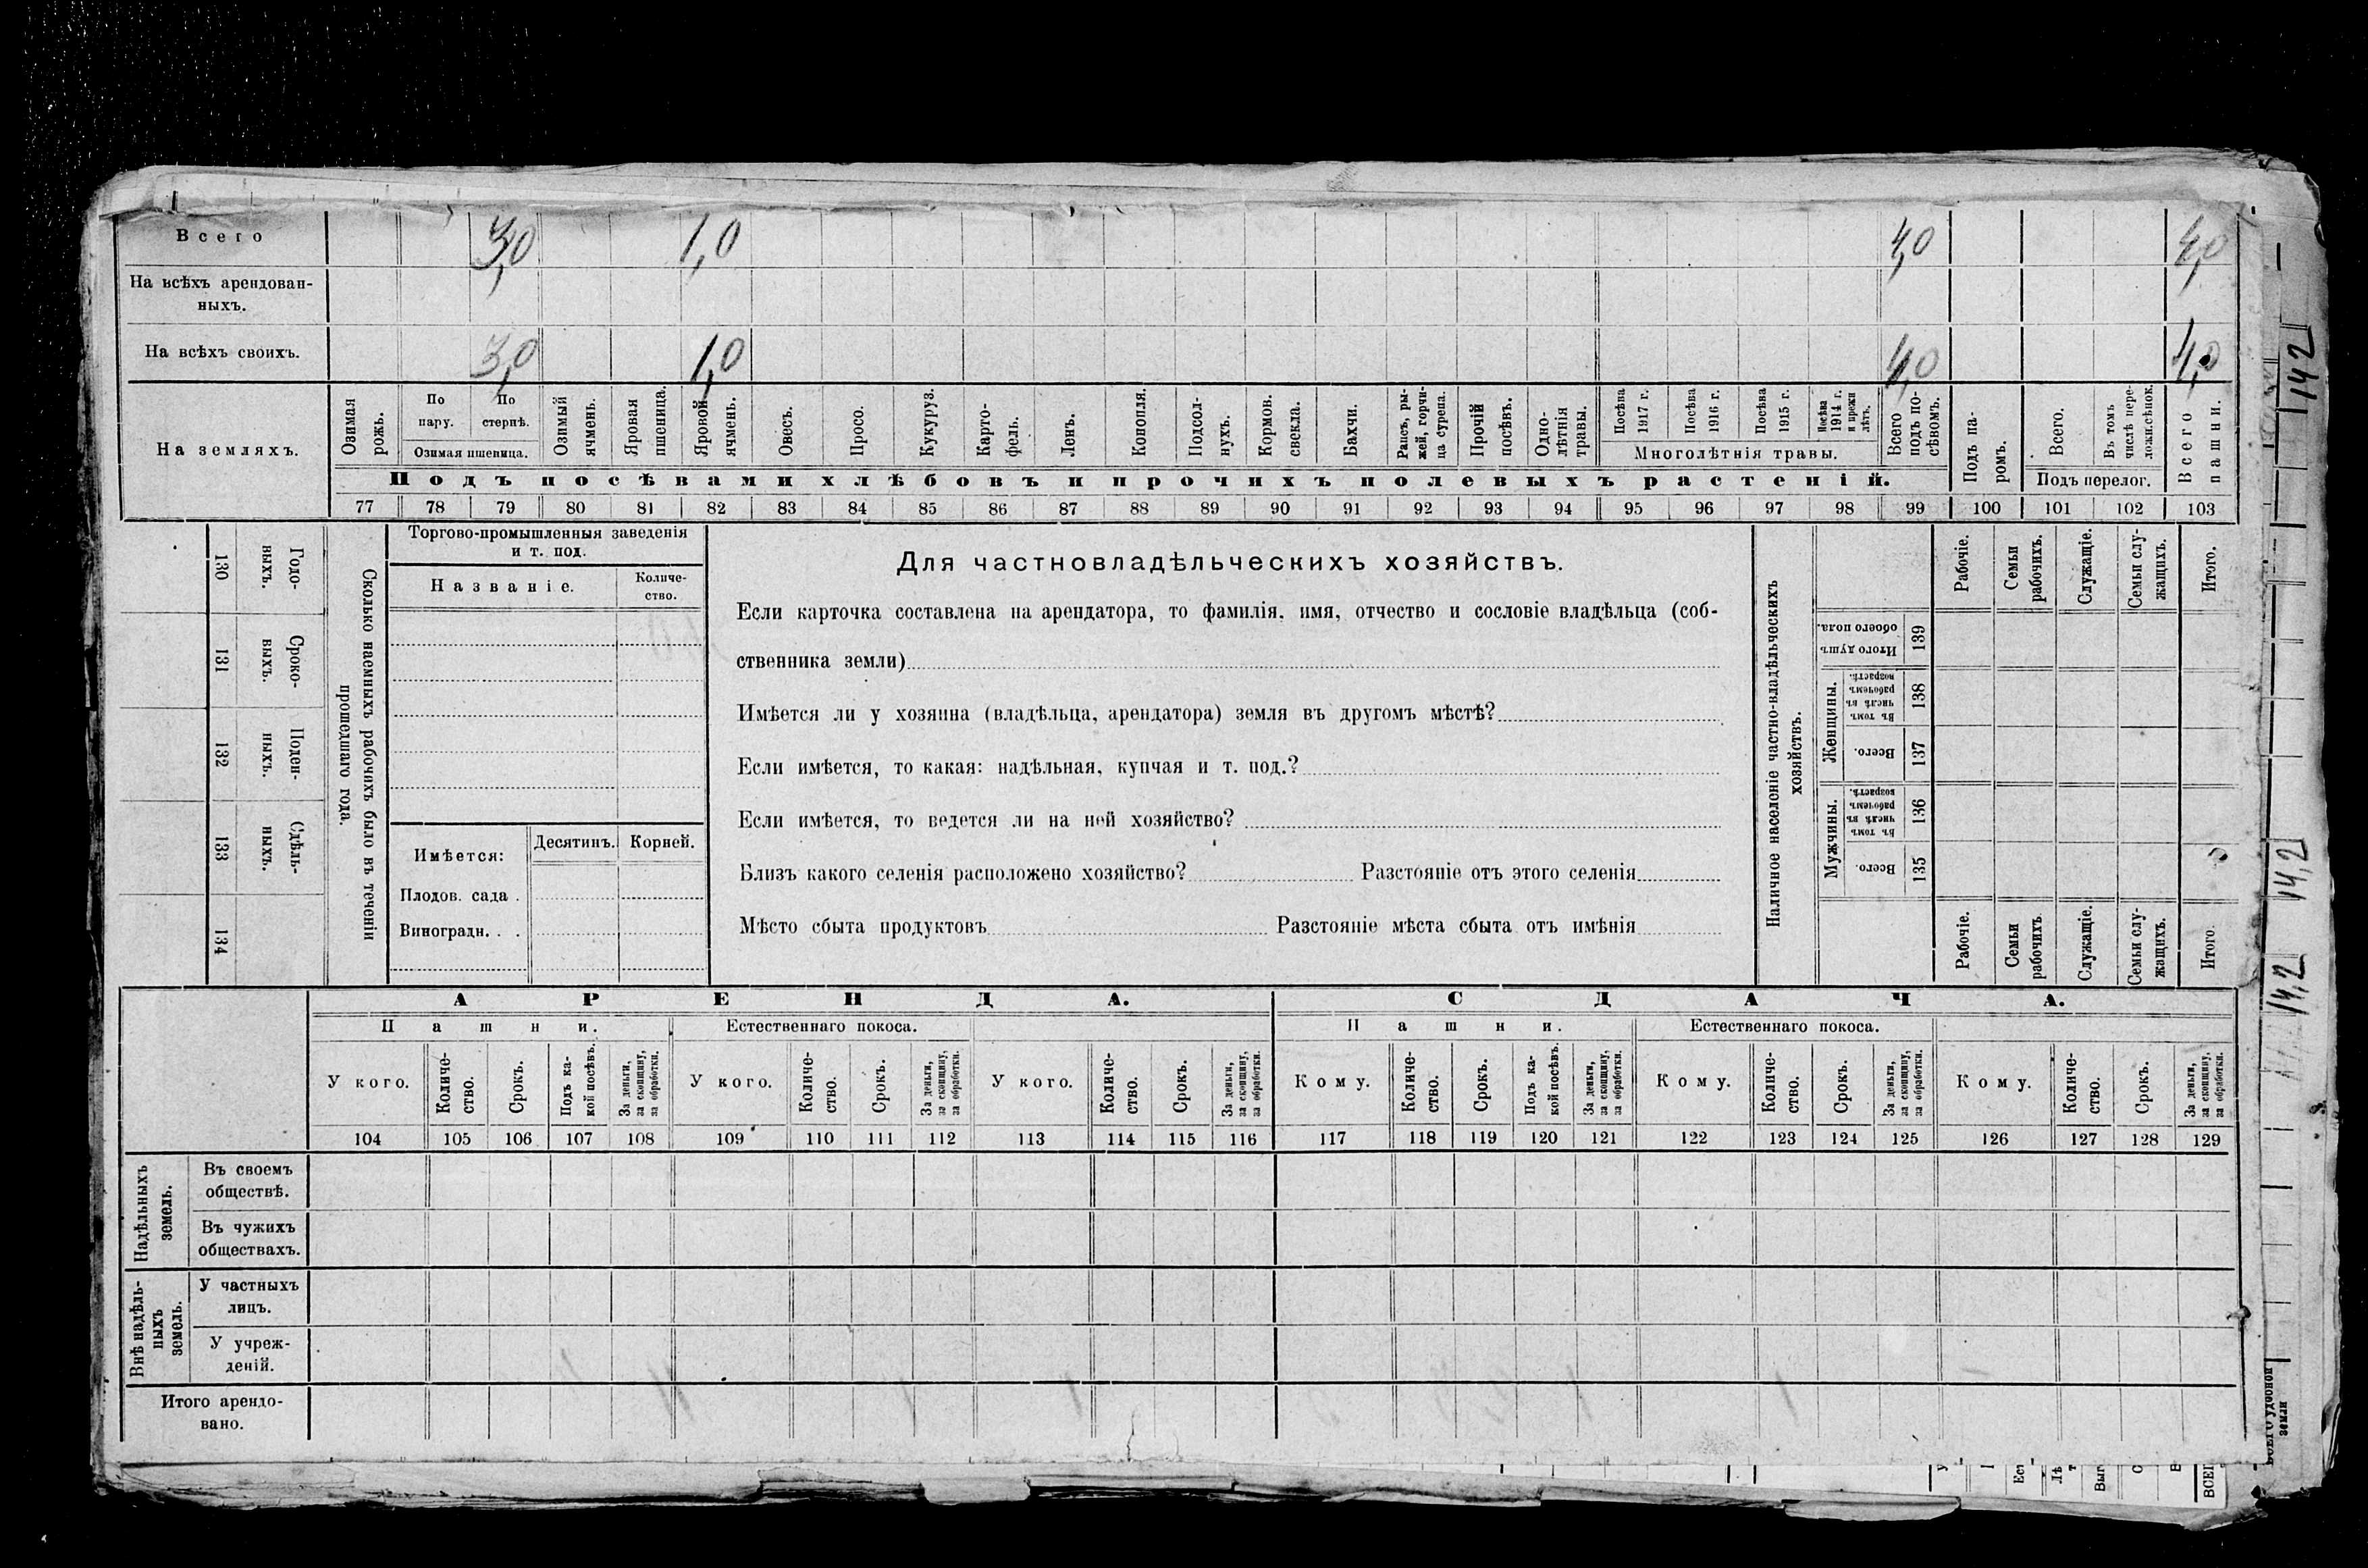 Всего 3,0 1,0 4,0 4,0
На всѣхъ арендован-
ныхъ.
На всѣхъ своихъ. 3,0 1,0 4,0 4,0
На земляхъ.
Озимая
рожь.
По
пару.
По
стернѣ.
Озимая пшеница.
Озимый
ячмень.
Яровая
пшеница.
Яровой
ячмень.
Овесъ.
Просо.
Кукуруз.
Карто-
фель.
Ленъ.
Конопля.
Подсол-
нухъ.
Кормов.
свекла.
Бахчи.
Рапсъ, ры-
жей, горчи-
ца сурепа.
Прочій
посѣвъ.
Одно-
лѣтнія
травы.
Посѣва
1917 г.
Посѣва
1916 г.
Посѣва
1915 г.
Посѣва
1914 г.
и прежн
лѣтъ.
Многолѣтнія травы.
Всего
подъ по-
сѣвомъ.
Подъ па-
ромъ.
Всего.
Въ томъ
числѣ пере-
лож.сѣнок.
Подъ перелог.
Всего
пашни.
Подъ посѣвами хлѣбовъ и прочихъ полевыхъ растеній.
77 78 79 80 81 82 83 84 85 86 87 88 89 90 91 92 93 94 95 96 97 98 99 100 101 102 103
Сколько наемныхъ рабочихъ было въ теченіи
прошедшаго года.
Годо-
выхъ.
130
Сроко-
выхъ.
131
Поден-
ныхъ.
132
Сдѣль-
ныхъ.
133
134
Торгово-промышленныя заведенія
и т. под.
Названіе.
Количе-
ство.
Имѣется:
Десятинъ. Корней.
Плодов. сада .
Виноградн. . .
Для частновладѣльческихъ хозяйствъ.
Если карточка составлена на арендатора, то фамилія, имя, отчество и сословіе владѣльца (соб-
ственника земли)
Имѣется ли у хозяина (владѣльца, арендатора) земля въ другомъ мѣстѣ?
Если имѣется, то какая: надѣльная, купчая и т. под.?
Если имѣется, то ведется ли на ней хозяйство?
Близъ какого селенія расположено хозяйство? Разстояніе отъ этого селенія
Мѣсто сбыта продуктовъ Разстояніе мѣста сбыта отъ имѣнія
Наличное населеніе частно-владѣльческихъ
хозяйствъ.
Рабочіе.
Семьи
рабочихъ.
Служащіе.
Семьи слу-
жащихъ.
Итого.
Итого душъ
обоего пола.
139
Женщины.
Въ томъ
числѣ въ
рабочемъ
возрастѣ.
138
Всего.
137
Мужчины.
Въ томъ
числѣ въ
рабочемъ
возрастѣ.
136
Всего.
135
Рабочіе.
Семьи
рабочихъ
Служащіе.
Семьи слу-
жащихъ.
Итого.
АРЕНДА. СДАЧА.
Пашни. Естественнаго покоса. Пашни. Естественнаго покоса.
У кого.
Количе-
ство.
Срокъ.
Подъ ка-
кой посѣвъ.
За деньги,
за скопщину,
за обработки.
У кого.
Количе-
ство.
Срокъ.
За деньги,
за скопщину,
за обработки.
У кого.
Количе-
ство.
Срокъ.
За деньги,
за скопщину,
за обработки.
Кому.
Количе-
ство.
Срокъ.
Подъ ка-
кой посѣвъ.
За деньги,
за скопщину,
за обработки.
Кому.
Количе-
ство.
Срокъ.
За деньги,
за скопщину,
за обработки.
Кому.
Количе-
ство.
Срокъ.
За деньги,
за скопщину,
за обработки.
104 105 106 107 108 109 110 111 112 113 114 115 116 117 118 119 120 121 122 123 124 125 126 127 128 129
Надѣльныхъ
земель.
Въ своемъ
обществѣ.
Въ чужихъ
обществахъ.
Внѣ надѣль-
ныхъ
земель.
У частныхъ
лицъ.
У учреж-
деній.
Итого арендо-
вано.
142
14,2
14,2
земли